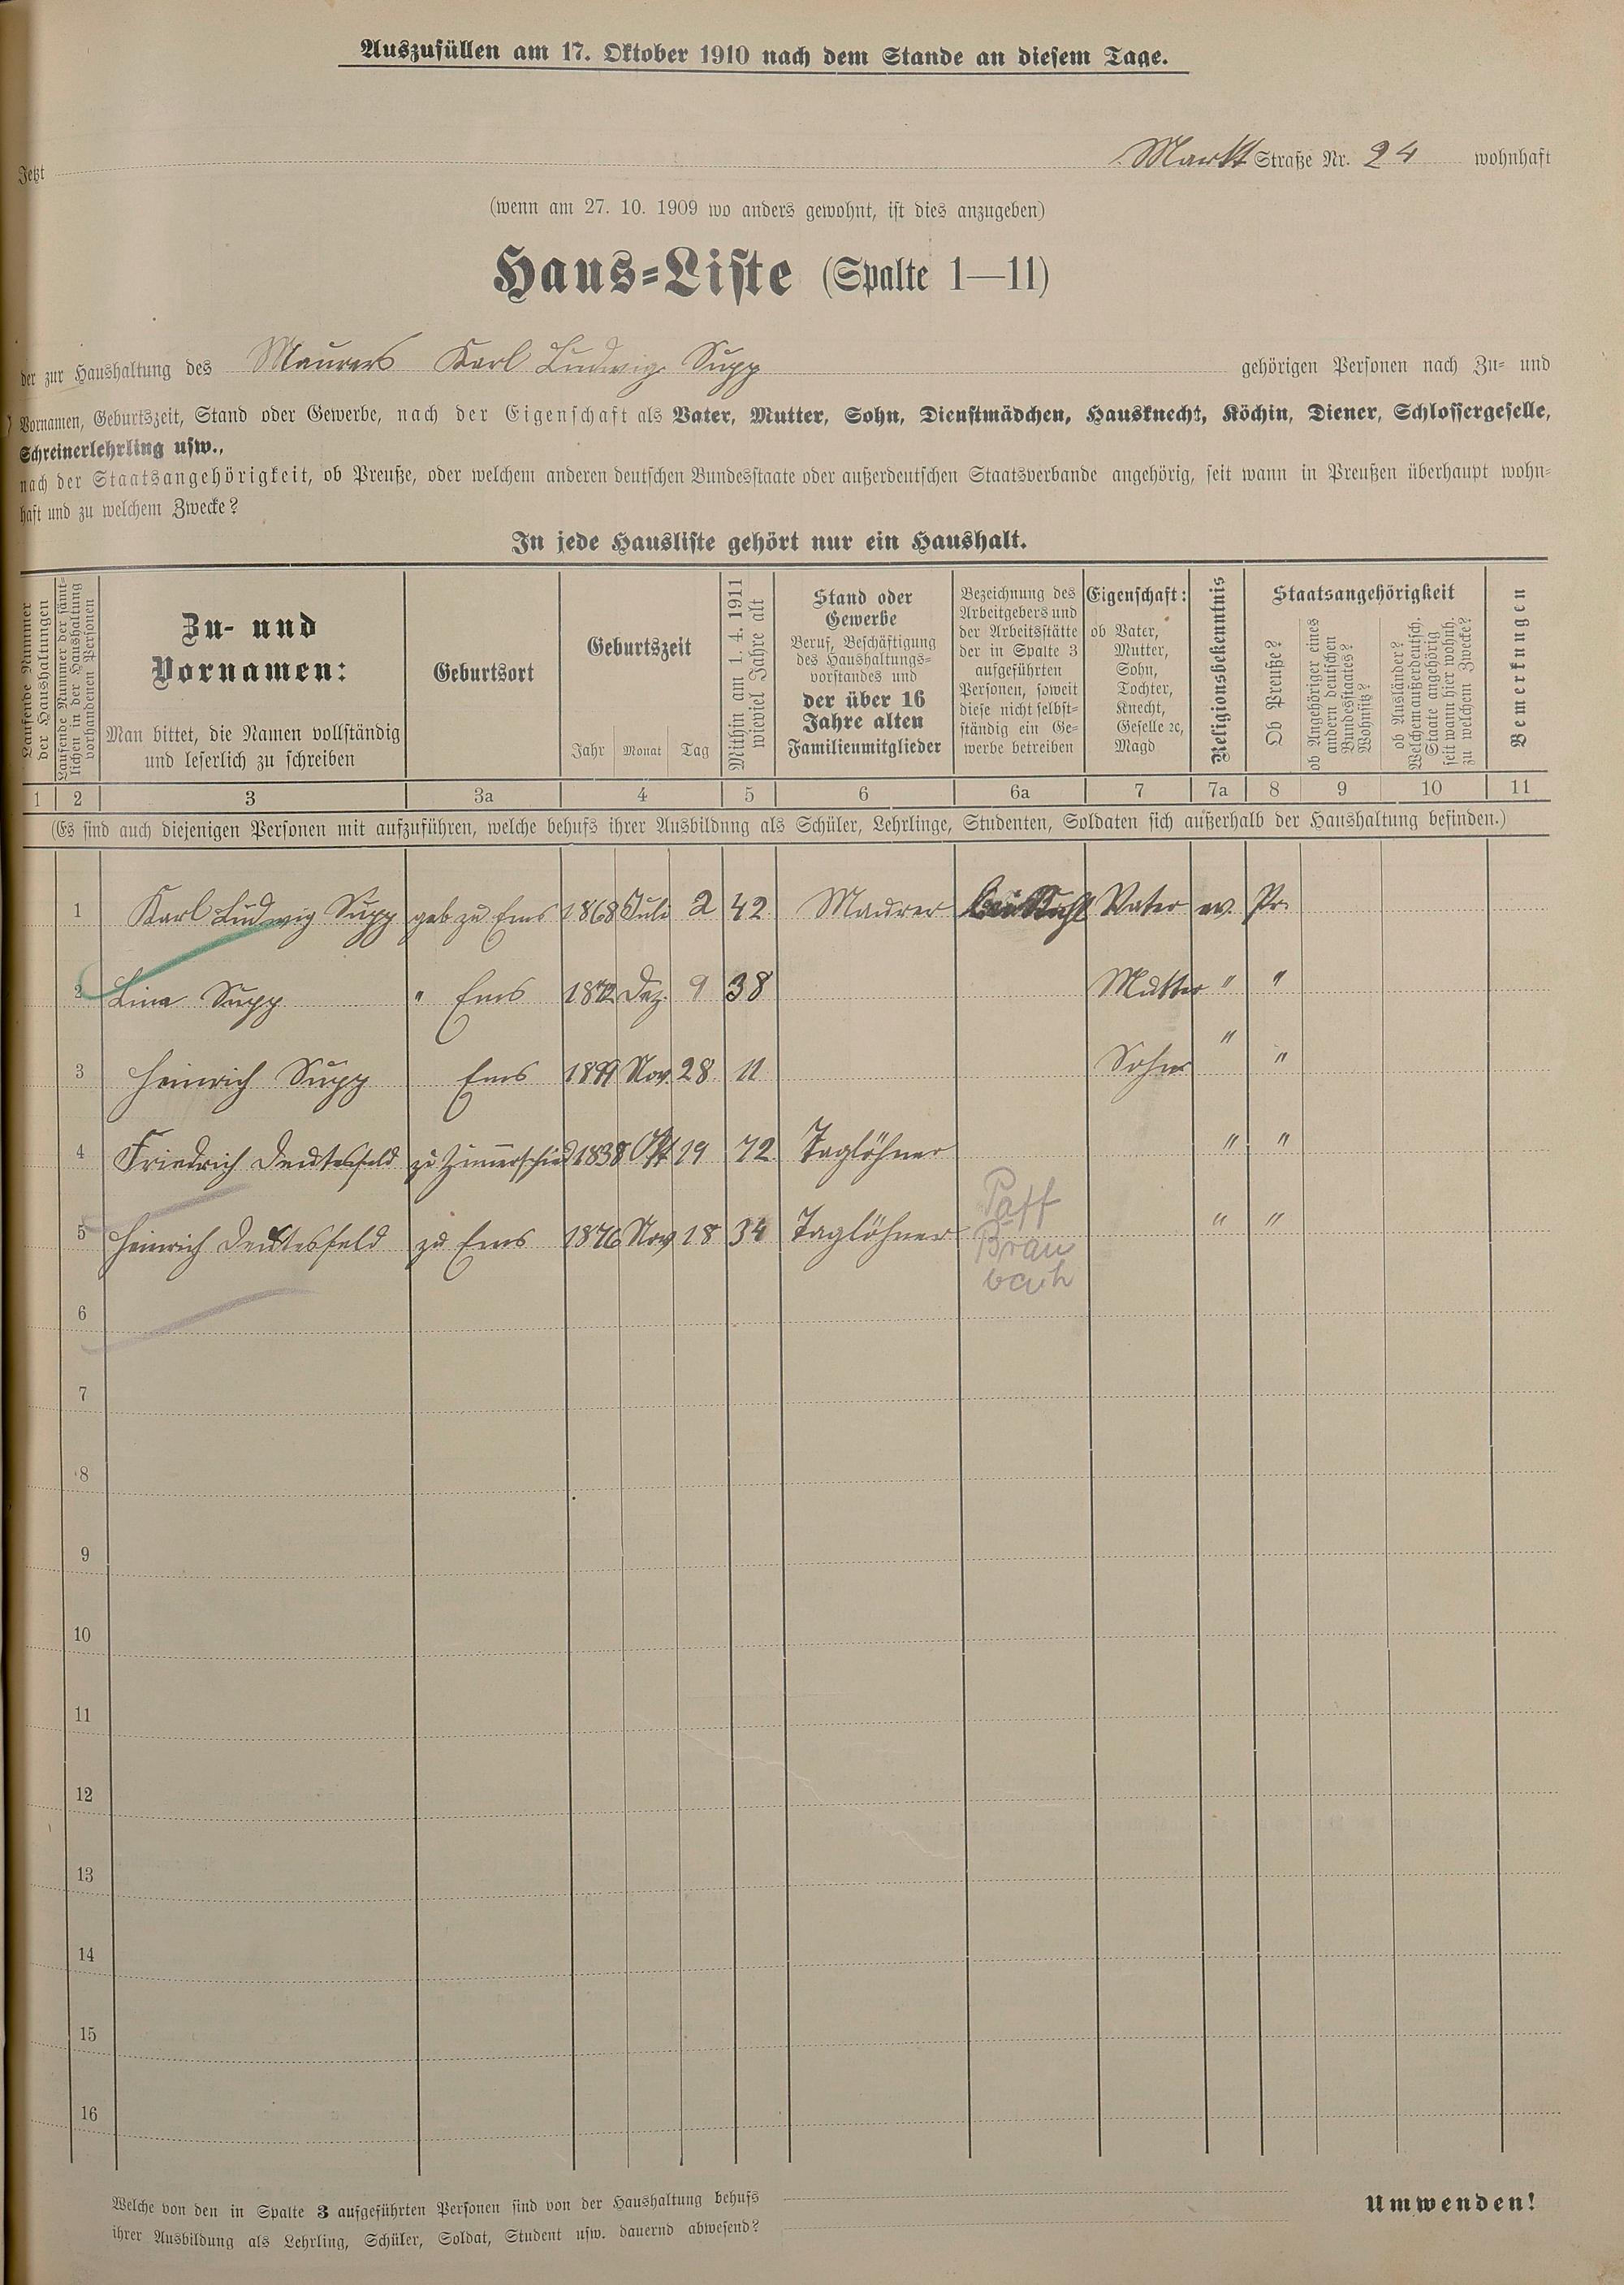 Auszufüllen am 17. Oktober 1910 nach dem Stande an diesem Tage.
Jetzt Markt Straße Nr. 24 wohnhaft
(wenn am 27. 10. 1909 wo anders gewohnt, ist dies anzugeben)
Haus-Liste (Spalte 1—11)
der zur Haushaltung des Maurers Karl Ludwig Supp gehörigen Personen nach Zu- und
Vornamen, Geburtszeit, Stand oder Gewerbe, nach der Eigenschaft als Vater, Mutter, Sohn, Dienstmädchen, Hausknecht, Köchin, Diener, Schlossergeselle,
Schreinerlehrling usw.,
nach der Staatsangehörigkeit, ob Preuße, oder welchem anderen deutschen Bundesstaate oder außerdeutschen Staatsverbande angehörig, seit wann in Preußen überhaupt wohn-
haft und zu welchem Zwecke?
In jede Hausliste gehört nur ein Haushalt.
Laufende Nummer
der Haushaltungen
Laufende Nummer der sämt-
lichen in der Haushaltung
vorhandenen Personen
Zu- und
Vornamen:
Man bittet, die Namen vollständig
und leserlich zu schreiben
Geburtsort
Geburtszeit
Jahr Monat Tag
Mithin am 1. 4. 1911
wieviel Jahre alt
Stand oder
Gewerbe
Beruf, Beschäftigung
des Haushaltungs-
vorstandes und
der über 16
Jahre alten
Familienmitglieder
Bezeichnung des
Arbeitgebers und
der Arbeitsstätte
der in Spalte 3
aufgeführten
Personen, soweit
diese nicht selbst-
ständig ein Ge-
werbe betreiben
Eigenschaft:
ob Vater,
Mutter,
Sohn,
Tochter,
Knecht,
Geselle ꝛc,
Magd
Religionsbekenntnis
Staatsangehörigkeit
Ob Preuße?
ob Angehöriger eines
andern deutschen
Bundesstaates?
Wohnsitz?
ob Ausländer?
Welchem außerdeutsch.
Staate angehörig
seit wann hier wohnh.
zu welchem Zwecke?
Bemerkungen
1 2 3 3a 4 5 6 6a 7 7a 8 9 10 11
(Es sind auch diejenigen Personen mit aufzuführen, welche behufs ihrer Ausbildung als Schüler, Lehrlinge, Studenten, Soldaten sich außerhalb der Haushaltung befinden.)
1 Karl Ludwig Supp geb zu Ems 1868 Juli 2 42 Maurer Vater ev. Pr.
2 Lina Supp " Ems 1872 Dez. 9 38 Mutter " "
3 Heinrich Supp Ems 1899 Nov. 28 11 Sohn " "
4 Friedrich Deutesfeld zu Zimmerschied 1838 19 72 Taglöhner " "
5 Heinrich Deutesfeld zu Ems 1876 Nov 18 34 Taglöhner Paff " "
Brau
bach
6
7
8
9
10
11
12
13
14
15
16
Welche von den in Spalte 3 aufgeführten Personen sind von der Haushaltung behufs
ihrer Ausbildung als Lehrling, Schüler, Soldat, Student usw. dauernd abwesend?
Umwenden!